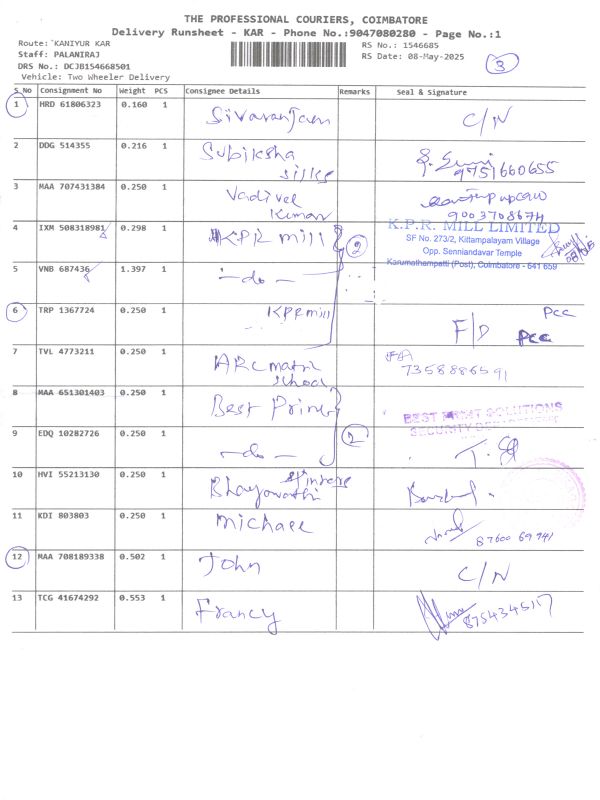 THE PROFESSIONAL COURIERS, COIMBATORE
Delivery Runsheet - KAR - Phone No.:9047080280 - Page No.:1
Route: KANIYUR KAR
RS No.: 1546685
Staff: PALANIRAJ
RS Date: 08-May-2025
DRS No.: DCJB154668501
3
Vehicle: Two Wheeler Delivery
S.No Consignment No Weight PCS Consignee Details Remarks Seal & Signature
1 HRD 61806323 0.160 1 C/N
2 DDG 514355 0.216 1 Subiksha silks
9751660655
3 MAA 707431384 0.250 1 Vadivel Kumar
9003708674
4 IXM 508318981 0.298 1 KPR mill 2
K.P.R. MILL LIMITED
SF No. 273/2, Kittampalayam Village
Opp. Senniandavar Temple
Karumathampatti (Post), Coimbatore - 641 659
5 VNB 687436 1.397 1 -do-
6 TRP 1367724 0.250 1 KPR mill F/D PCC
PCC
7 TVL 4773211 0.250 1 ARC matri school
7358886591
8 MAA 651301403 0.250 1 Best Print
BEST PRINT SOLUTIONS
SECURITY DEPARTMENT
9 EDQ 10282726 0.250 1 -do- 2
10 HVI 55213130 0.250 1
11 KDI 803803 0.250 1 michael
87600 69941
12 MAA 708189338 0.502 1 John C/N
13 TCG 41674292 0.553 1 Francy
8754345117